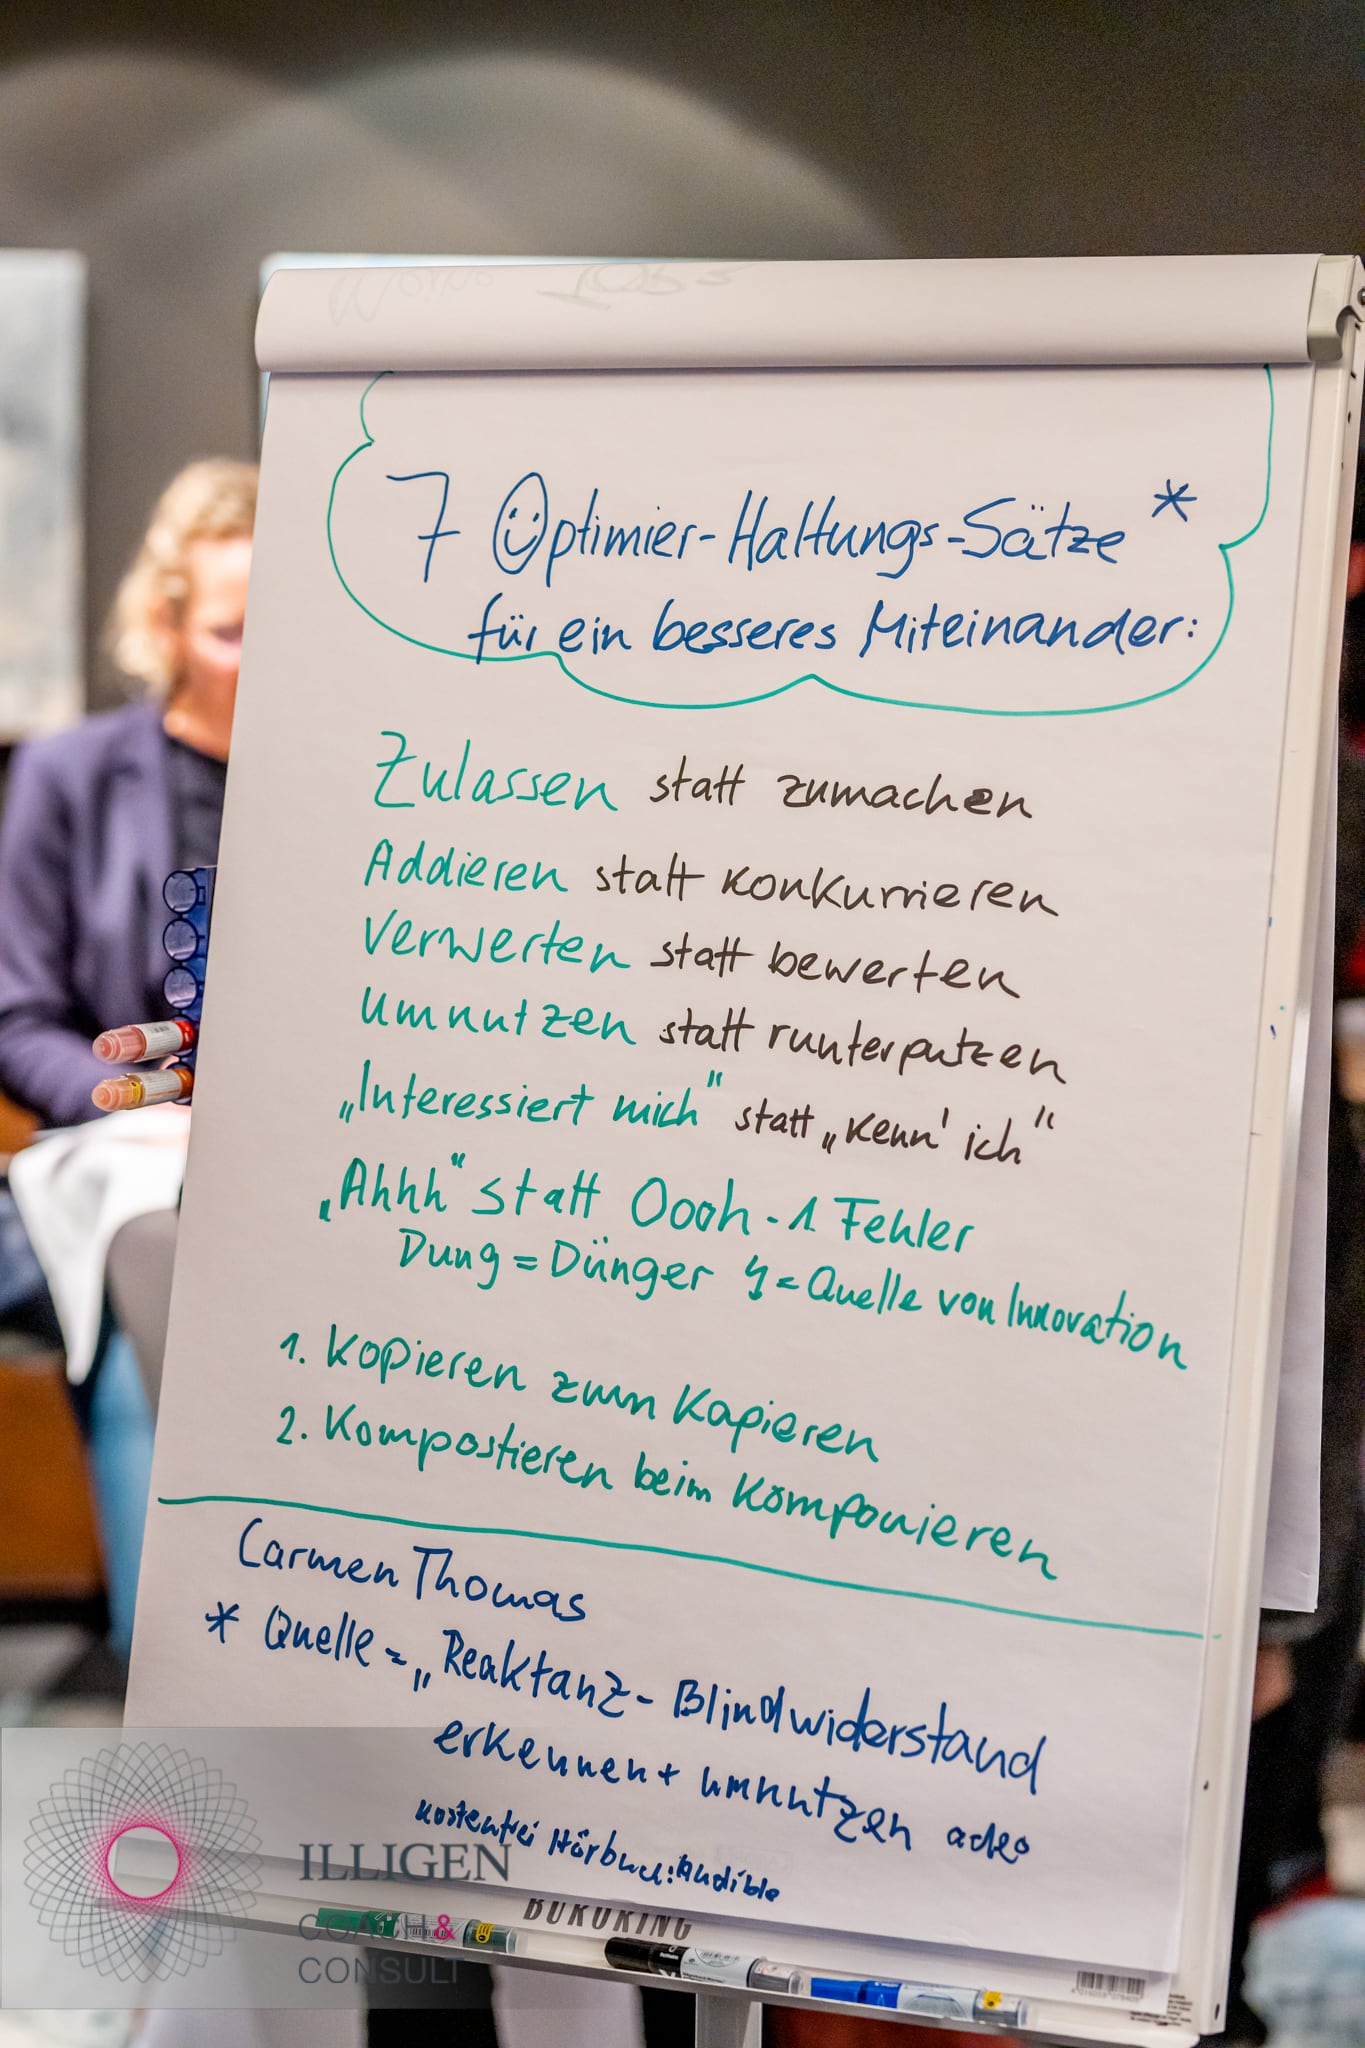 7 Optimier-Haltungs-Sätze *
für ein besseres Miteinander:
Zulassen statt zumachen
Addieren statt konkurrieren
Verwerten statt bewerten
Umnutzen statt runterputzen
„Interessiert mich" statt „kenn' ich"
„Ahhh" statt Oooh - 1 Fehler
Dung = Dünger = Quelle von Innovation
1. Kopieren zum Kapieren
2. Kompostieren beim Komponieren
Carmen Thomas
* Quelle = „Reaktanz - Blindwiderstand
erkennen + umnutzen
kostenfrei Hörbuch: Audible
ILLIGEN
COACH &
CONSULT
BÜRORING